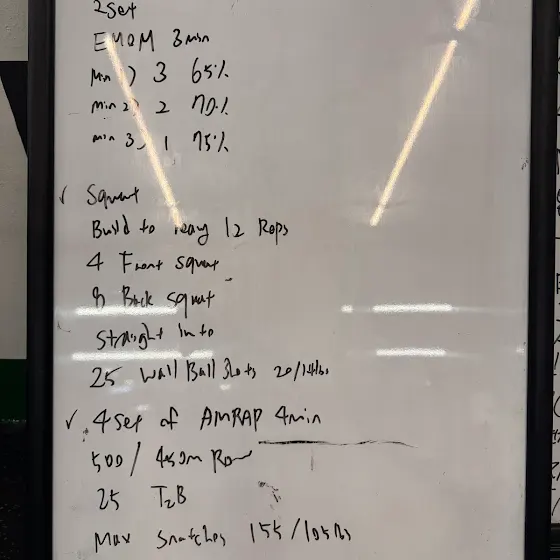 2 Set
EMOM 3 min
min ) 3 65%
min 2) 2 70%
min 3) 1 75%
✓ Squat
Build to Heavy 12 Reps
4 Front squat
8 Back squat
Straight into
25 Wall Ball Shots 20/14lbs
✓ 4 Set of AMRAP 4min
500 / 450m Row
25 T2B
Max Snatches 155/105lbs